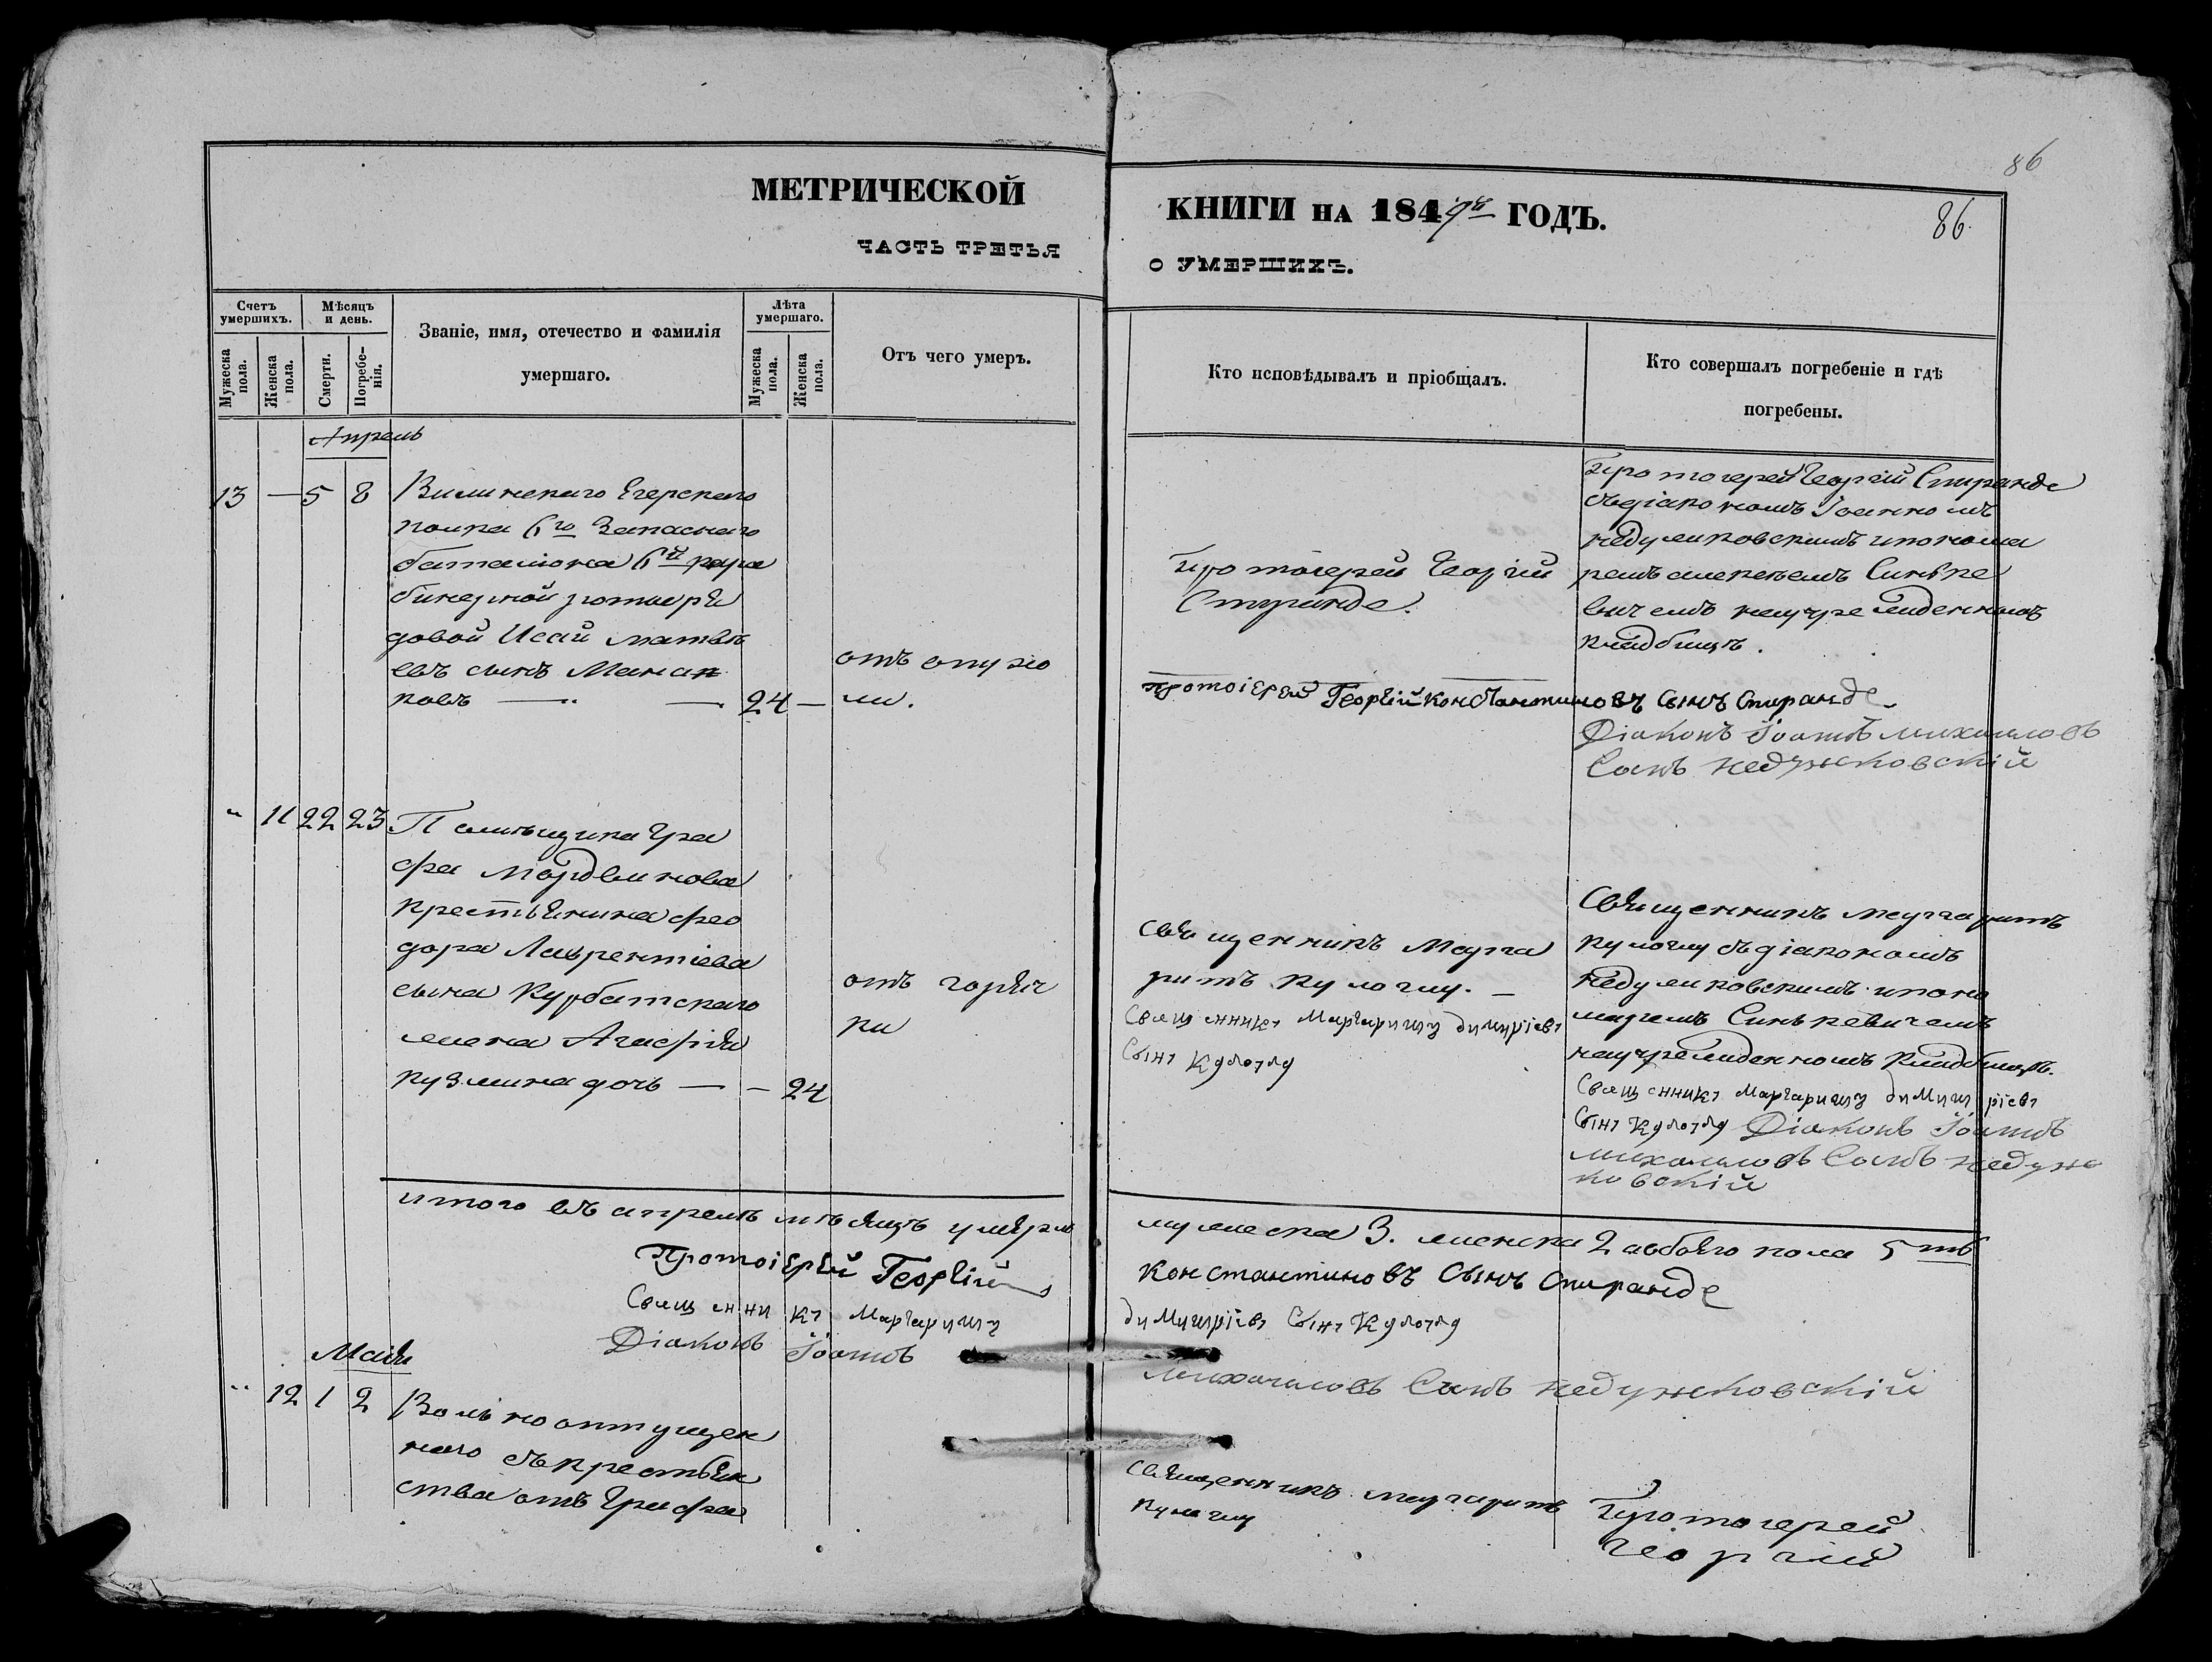 86
МЕТРИЧЕСКОЙ КНИГИ НА 1849й ГОДЪ.
86.
ЧАСТЬ ТРЕТЬЯ О УМЕРШИХЪ.
Счетъ умершихъ.
Мужеска пола.
Женска пола.
Мѣсяцъ и день.
Смерти.
Погребенія.
Званіе, имя, отечество и фамилія
умершаго.
Лѣта умершаго.
Мужеска пола.
Женска пола.
Отъ чего умеръ.
Кто исповѣдывалъ и пріобщалъ.
Кто совершалъ погребеніе и гдѣ
погребены.
Апрель
13 — 5 8
Виленскаго Егерскаго
полка 6го Запаснаго
баталіона 6й кара
бинерной роты ря
довой Исай Матвѣ
евъ сынъ Манап
ковъ — — 24 —
отъ опухо
ли.
Протоіерей Георгій
Спиранде.
Протоіерей Георгій Спиранде
съ діакономъ Іоанномъ
Недужковскимъ и понома
ремъ Синьке
вичемъ на учрежденномъ
кладбищѣ.
Протоіерей Георгій Константиновъ Сынъ Спиранде
Діаконъ Іоаннъ Михаиловъ
Сынъ Недужковскій
" 11 22 23
Помѣщика Гра
фа Мордвинова
крестьянина Фео
дора Лаврентіева
сына Курбатскаго
жена Агафія
Кузмина дочь — — 24
отъ горяч
ки
Священникъ Марга
ритъ Кулоглу. —
Священникъ Маргаритъ Димитріевъ
Сынъ Кулоглу
Священникъ Маргаритъ
Кулоглу съ діакономъ
Недужковскимъ и поно
маремъ Синькевичемъ
на учрежденномъ кладбищѣ.
Священникъ Маргаритъ Димитріевъ
Сынъ Кулоглу Діаконъ Іоаннъ
Михаиловъ Сынъ Недуж
ковскій
итого въ апрелѣ мѣсяцѣ умерло мужеска 3. женска 2 а обоего пола 5ть
Протоіерей Георгій Константиновъ Сынъ Спиранде
Священникъ Маргаритъ Димитріевъ Сынъ Кулоглу
Діаконъ Іоаннъ Михаиловъ Сынъ Недужковскій
Майя
" 12 1 2
Вольноотпущен
наго съ крестьян
ства отъ Графа
Священникъ Маргаритъ
Кулоглу
Протоіерей
Георгій